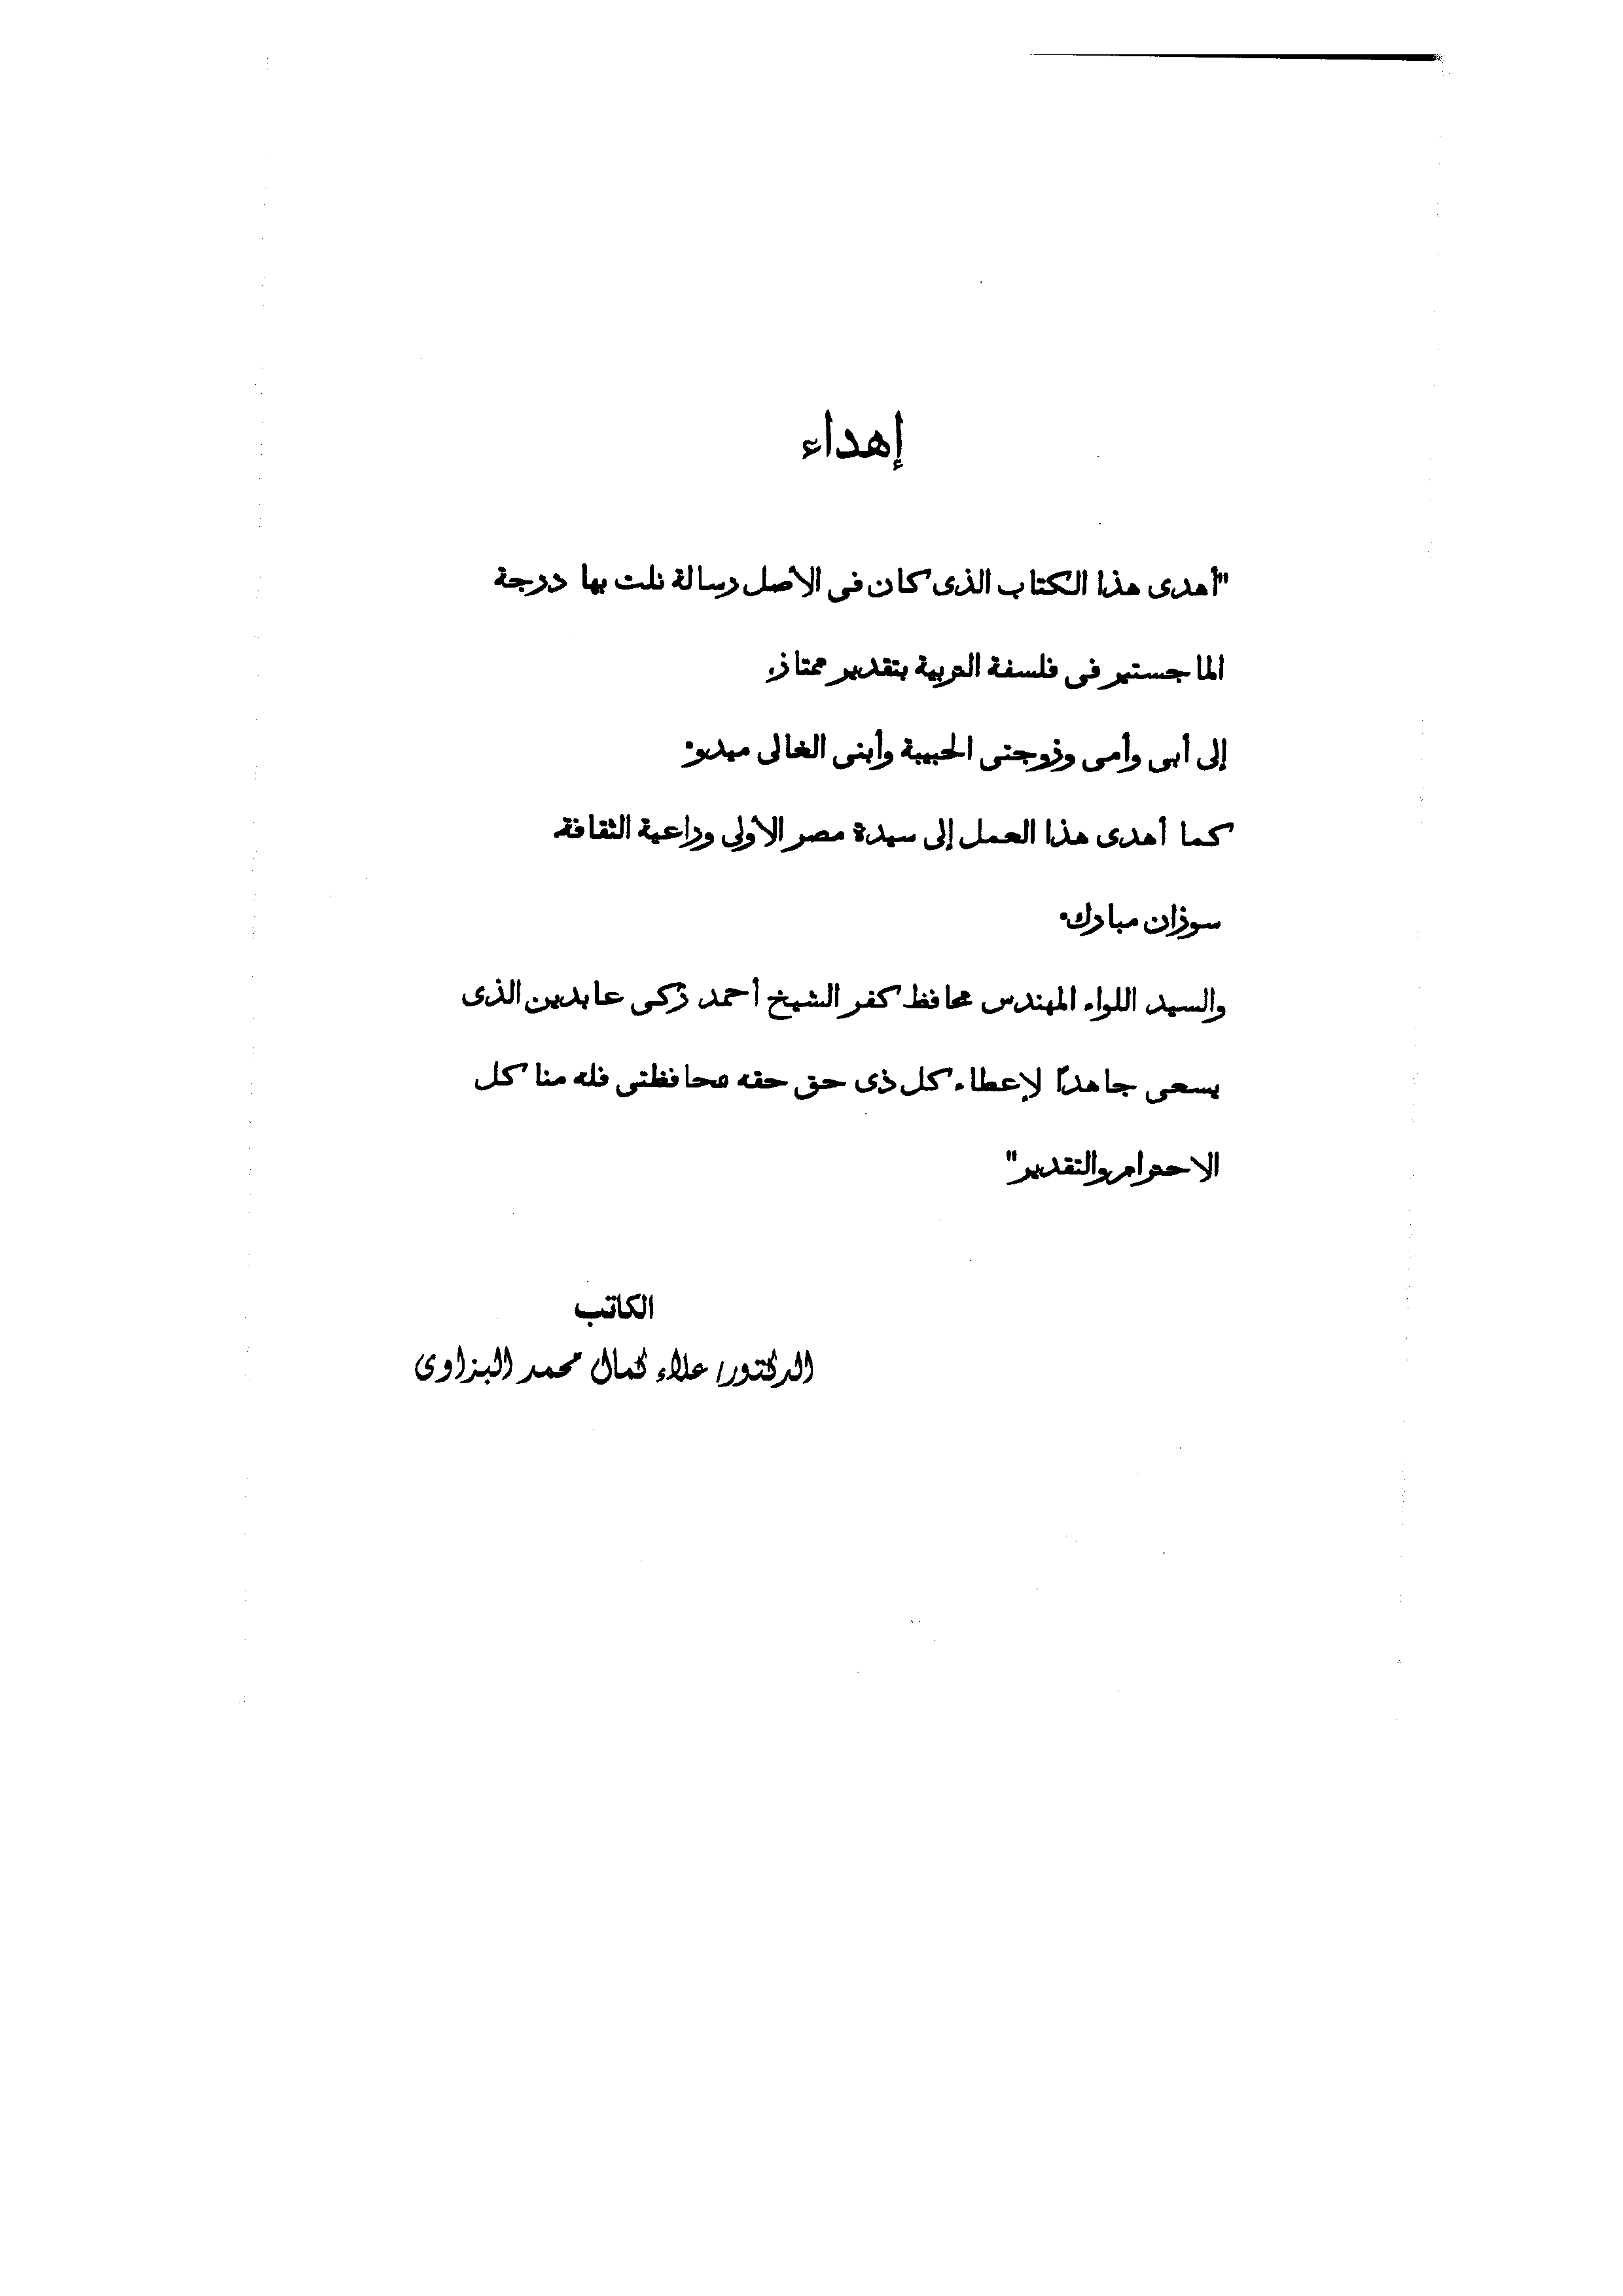 إهداء
"أهدى هذا الكتاب الذى كان فى الأصل رسالة نلت بها درجة
الماجستير فى فلسفة التربية بتقدير ممتاز.
إلى أبى وأمى وزوجتى الحبيبة وأبنى الغالى ميدو.
كما أهدى هذا العمل إلى سيدة مصر الأولى وراعية الثقافة
سوزان مبارك.
والسيد اللواء المهندس محافظ كفر الشيخ أحمد زكى عابدين الذى
يسعى جاهدًا لإعطاء كل ذى حق حقه محافظتى فله منا كل
الاحترام والتقدير"
الكاتب
الدكتور/ علاء كمال محمد البزاوى